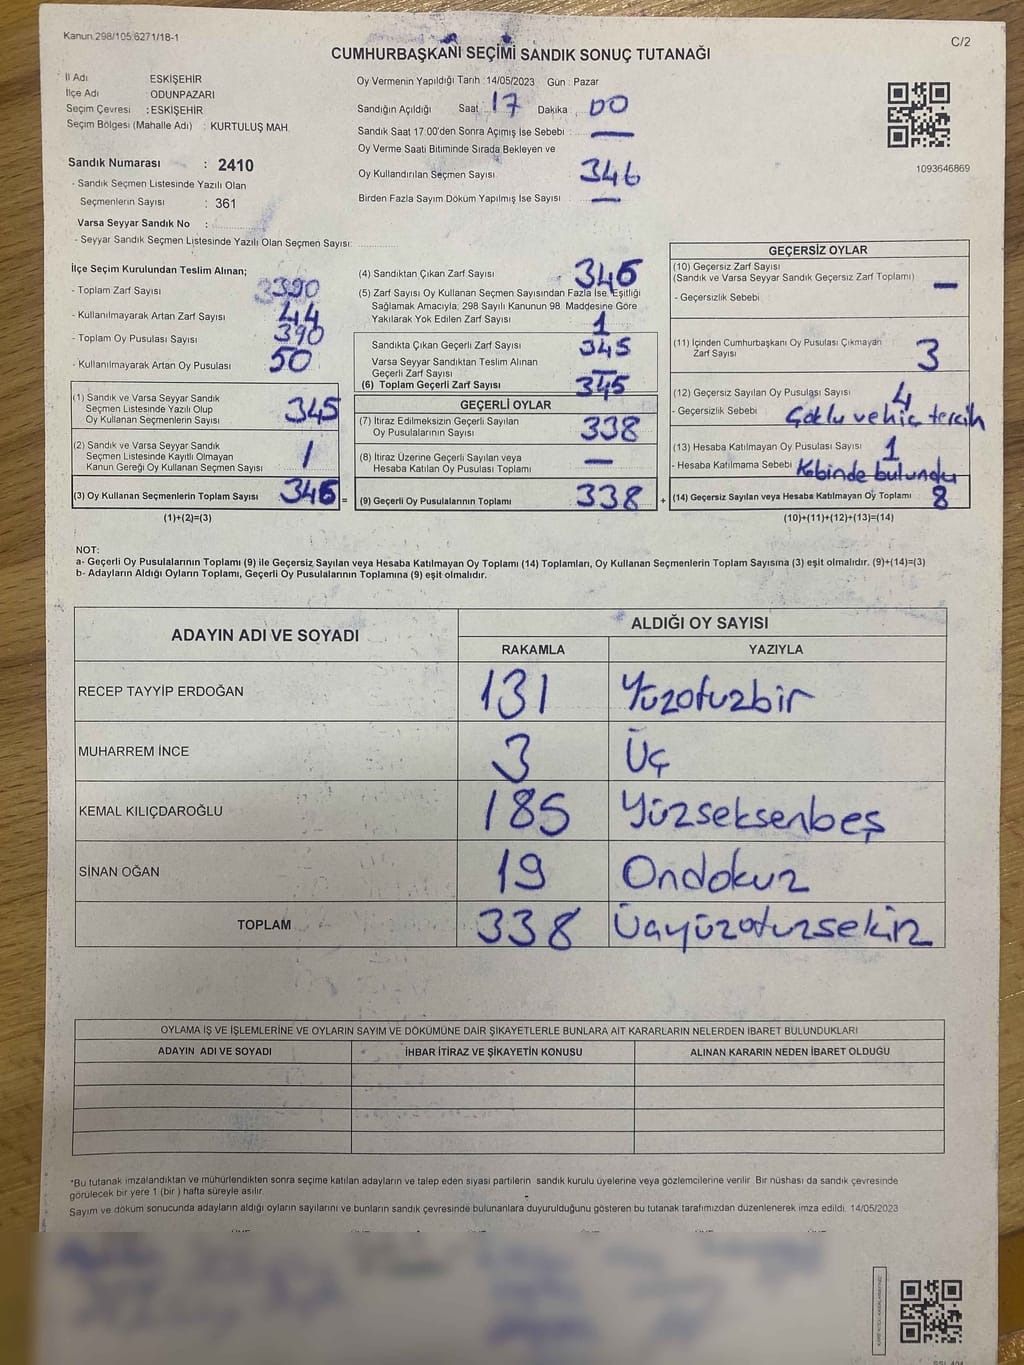 Kanun 298/105,6271/18-1
C/2
CUMHURBAŞKANI SEÇİMİ SANDIK SONUÇ TUTANAĞI
İl Adı ESKİŞEHİR
İlçe Adı : ODUNPAZARI
Seçim Çevresi : ESKİŞEHİR
Seçim Bölgesi (Mahalle Adı) : KURTULUŞ MAH.
Sandık Numarası : 2410
- Sandık Seçmen Listesinde Yazılı Olan
Seçmenlerin Sayısı : 361
Varsa Seyyar Sandık No :
- Seyyar Sandık Seçmen Listesinde Yazılı Olan Seçmen Sayısı:
Oy Vermenin Yapıldığı Tarih : 14/05/2023 Gün : Pazar
Sandığın Açıldığı Saat : 17 Dakika : 00
Sandık Saat 17.00'den Sonra Açımış İse Sebebi : —
Oy Verme Saati Bitiminde Sırada Bekleyen ve
Oy Kullandırılan Seçmen Sayısı 346
Birden Fazla Sayım Döküm Yapılmış İse Sayısı : —
1093646869
İlçe Seçim Kurulundan Teslim Alınan;
- Toplam Zarf Sayısı 390
- Kullanılmayarak Artan Zarf Sayısı : 44
- Toplam Oy Pusulası Sayısı : 390
- Kullanılmayarak Artan Oy Pusulası : 50
(1) Sandık ve Varsa Seyyar Sandık
Seçmen Listesinde Yazılı Olup
Oy Kullanan Seçmenlerin Sayısı : 345
(2) Sandık ve Varsa Seyyar Sandık
Seçmen Listesinde Kayıtlı Olmayan
Kanun Gereği Oy Kullanan Seçmen Sayısı : 1
(3) Oy Kullanan Seçmenlerin Toplam Sayısı : 346 =
(1)+(2)=(3)
(4) Sandıktan Çıkan Zarf Sayısı : 346
(5) Zarf Sayısı Oy Kullanan Seçmen Sayısından Fazla İse, Eşitliği
Sağlamak Amacıyla; 298 Sayılı Kanunun 98. Maddesine Göre
Yakılarak Yok Edilen Zarf Sayısı : 1
Sandıkta Çıkan Geçerli Zarf Sayısı : 345
Varsa Seyyar Sandıktan Teslim Alınan
Geçerli Zarf Sayısı : —
(6) Toplam Geçerli Zarf Sayısı : 345
GEÇERLİ OYLAR
(7) İtiraz Edilmeksizin Geçerli Sayılan
Oy Pusulalarının Sayısı : 338
(8) İtiraz Üzerine Geçerli Sayılan veya
Hesaba Katılan Oy Pusulası Toplamı : —
(9) Geçerli Oy Pusulalarının Toplamı : 338 +
GEÇERSİZ OYLAR
(10) Geçersiz Zarf Sayısı
(Sandık ve Varsa Seyyar Sandık Geçersiz Zarf Toplamı) : —
- Geçersizlik Sebebi
(11) İçinden Cumhurbaşkanı Oy Pusulası Çıkmayan
Zarf Sayısı : 3
(12) Geçersiz Sayılan Oy Pusulası Sayısı : 4
- Geçersizlik Sebebi : Çoklu ve hiç tercih
(13) Hesaba Katılmayan Oy Pusulası Sayısı : 1
- Hesaba Katılmama Sebebi : Kabinde bulundu
(14) Geçersiz Sayılan veya Hesaba Katılmayan Oy Toplamı : 8
(10)+(11)+(12)+(13)=(14)
NOT:
a- Geçerli Oy Pusulalarının Toplamı (9) ile Geçersiz Sayılan veya Hesaba Katılmayan Oy Toplamı (14) Toplamları, Oy Kullanan Seçmenlerin Toplam Sayısına (3) eşit olmalıdır. (9)+(14)=(3)
b- Adayların Aldığı Oyların Toplamı, Geçerli Oy Pusulalarının Toplamına (9) eşit olmalıdır.
ADAYIN ADI VE SOYADI
ALDIĞI OY SAYISI
RAKAMLA YAZIYLA
RECEP TAYYİP ERDOĞAN 131 Yüzotuzbir
MUHARREM İNCE 3 Üç
KEMAL KILIÇDAROĞLU 185 Yüzseksenbeş
SİNAN OĞAN 19 Ondokuz
TOPLAM 338 Üçyüzotuzsekiz
OYLAMA İŞ VE İŞLEMLERİNE VE OYLARIN SAYIM VE DÖKÜMÜNE DAİR ŞİKAYETLERLE BUNLARA AİT KARARLARIN NELERDEN İBARET BULUNDUKLARI
ADAYIN ADI VE SOYADI İHBAR İTİRAZ VE ŞİKAYETİN KONUSU ALINAN KARARIN NEDEN İBARET OLDUĞU
*Bu tutanak imzalandıktan ve mühürlendikten sonra seçime katılan adayların ve talep eden siyasi partilerin sandık kurulu üyelerine veya gözlemcilerine verilir. Bir nüshası da sandık çevresinde
görülecek bir yere 1 (bir) hafta süreyle asılır.
Sayım ve döküm sonucunda adayların aldığı oyların sayılarını ve bunların sandık çevresinde bulunanlara duyurulduğunu gösteren bu tutanak tarafımızdan düzenlenerek imza edildi. 14/05/2023